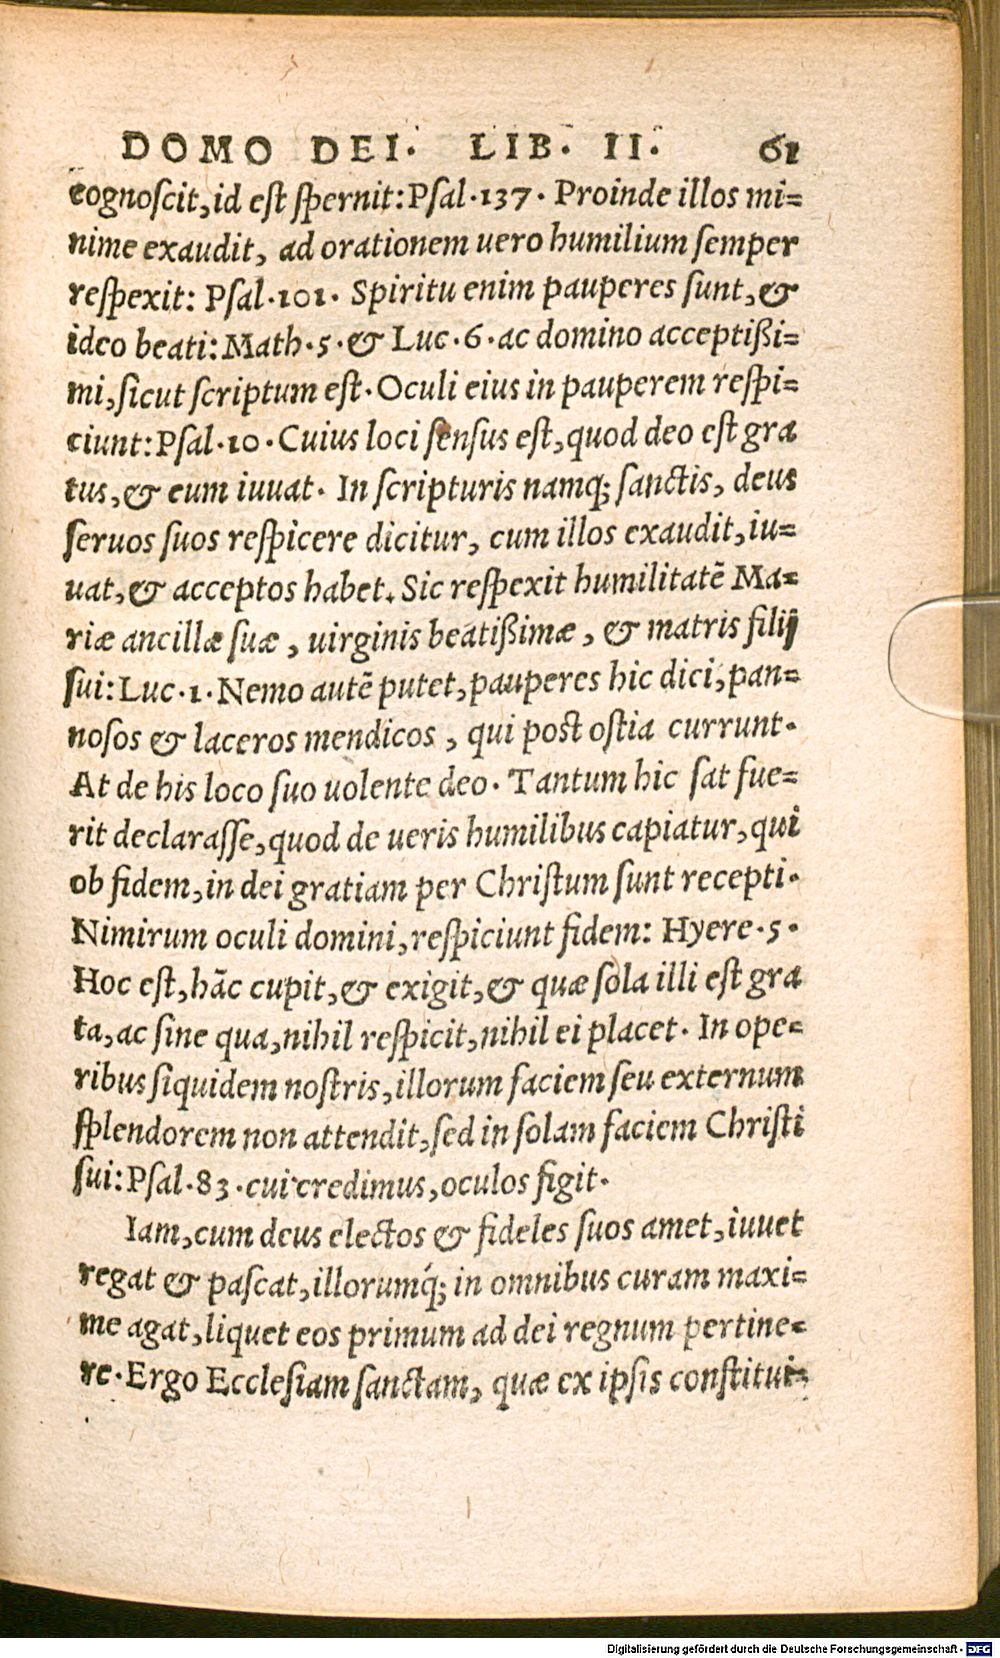 DOMO DEI. LIB. II. 61
cognoſcit, id eſt ſpernit: Pſal. 137. Proinde illos mi=
nime exaudit, ad orationem uero humilium ſemper
reſpexit: Pſal. 101. Spiritu enim pauperes ſunt, &
ideo beati: Math. 5. & Luc. 6. ac domino acceptißi=
mi, ſicut ſcriptum eſt. Oculi eius in pauperem reſpi=
ciunt: Pſal. 10. Cuius loci ſenſus eſt, quod deo eſt gra
tus, & eum iuuat. In ſcripturis namq; ſanctis, deus
ſeruos ſuos reſpicere dicitur, cum illos exaudit, iu=
uat, & acceptos habet. Sic reſpexit humilitatē Ma=
riæ ancillæ ſuæ, uirginis beatißimæ, & matris filij
ſui: Luc. 1. Nemo autē putet, pauperes hic dici, pan=
noſos & laceros mendicos, qui poſt oſtia currunt.
At de his loco ſuo uolente deo. Tantum hic ſat fue=
rit declaraſſe, quod de ueris humilibus capiatur, qui
ob fidem, in dei gratiam per Chriſtum ſunt recepti.
Nimirum oculi domini, reſpiciunt fidem: Hyere. 5.
Hoc eſt, hāc cupit, & exigit, & quæ ſola illi eſt gra
ta, ac ſine qua, nihil reſpicit, nihil ei placet. In ope=
ribus ſiquidem noſtris, illorum faciem ſeu externum
ſplendorem non attendit, ſed in ſolam faciem Chriſti
ſui: Pſal. 83. cui credimus, oculos figit.
Iam, cum deus electos & fideles ſuos amet, iuuet
regat & paſcat, illorumq́; in omnibus curam maxi=
me agat, liquet eos primum ad dei regnum pertine=
re. Ergo Eccleſiam ſanctam, quæ ex ipſis conſtitui=
Digitalisierung gefördert durch die Deutsche Forschungsgemeinschaft - DFG